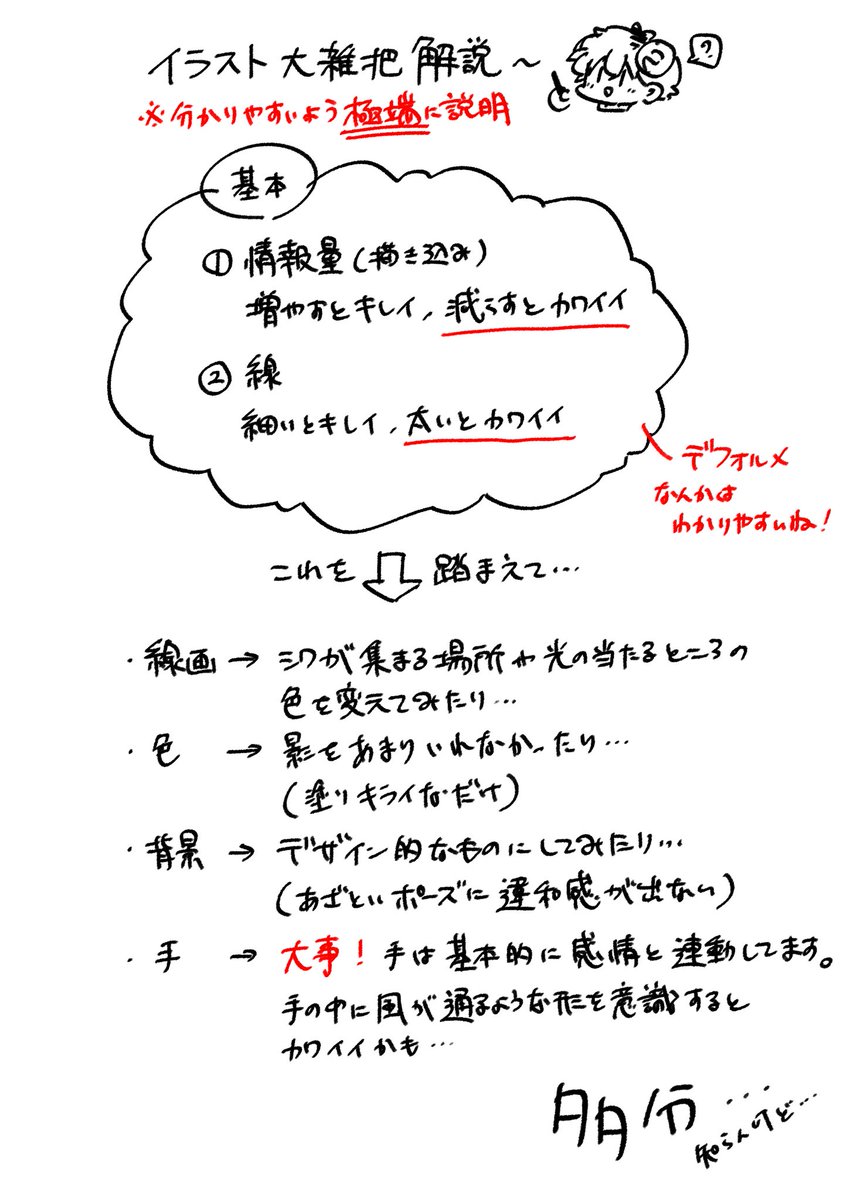 イラスト大雑把解説~
?
※分かりやすいよう極端に説明
基本
① 情報量(描き込み)
増やすとキレイ, 減らすとカワイイ
② 線
細いとキレイ, 太いとカワイイ
デフォルメ
なんかは
わかりやすいね!
これを⇩踏まえて…
・線画 → シワが集まる場所や光の当たるところの
色を変えてみたり…
・色 → 影をあまりいれなかったり…
(塗りキライなだけ)
・背景 → デザイン的なものにしてみたり…
(あざといポーズに違和感が出ない)
・手 → 大事! 手は基本的に感情と連動してます。
手の中に風が通るような形を意識すると
カワイイかも…
多分…
知らんけど…